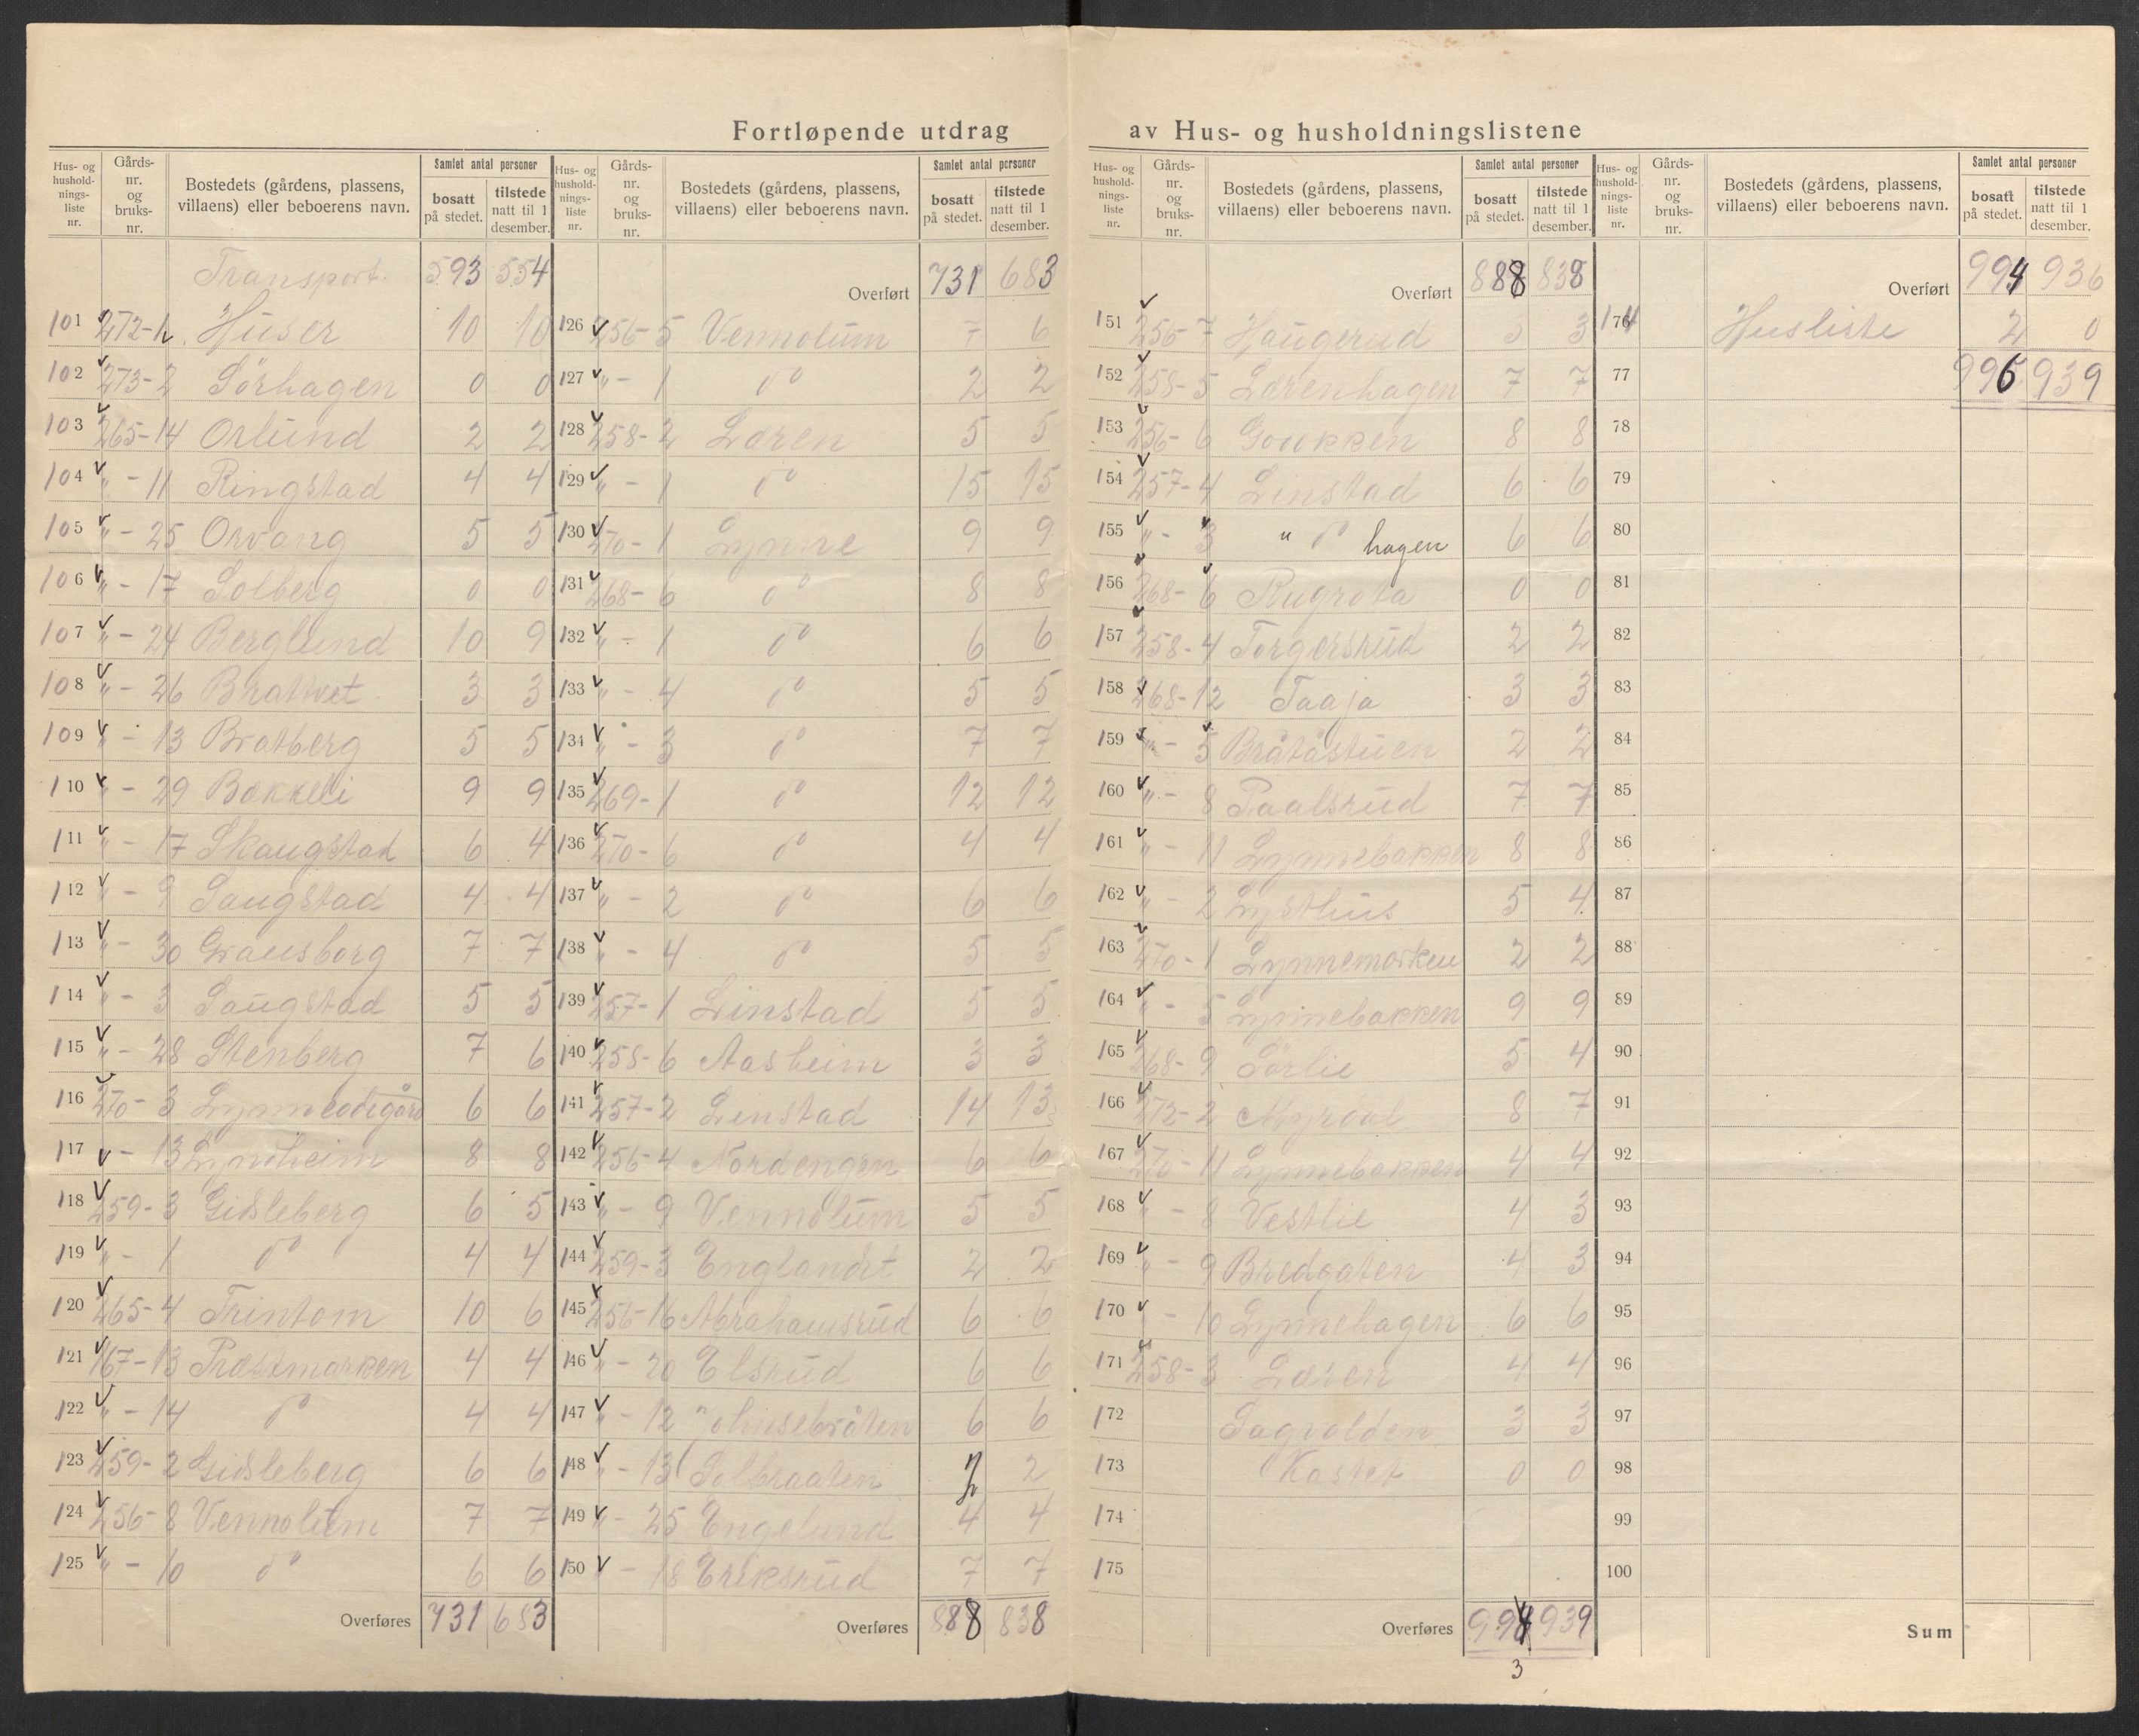 Fortløpende utdrag av Hus- og husholdningslistene
Hus- og hushold- nings- liste nr. | Gårds- nr. og bruks- nr. | Bostedets (gårdens, plassens, villaens) eller beboerens navn. | Samlet antal personer | bosatt på stedet. | tilstede natt til 1 desember.
Transport. 593 554
101 272-1 Huser 10 10
102 273-2 Sörhagen 0 0
103 265-14 Orlund 2 2
104 " - 11 Ringstad 4 4
105 " - 25 Orvang 5 5
106 " - 17 Solberg 0 0
107 " - 24 Berglund 10 9
108 " - 26 Brattvet 3 3
109 " - 13 Bratberg 5 5
110 " - 29 Bakkeli 9 9
111 " - 17 Skaugstad 6 4
112 " - 9 Saugstad 4 4
113 " - 30 Gransborg 7 7
114 " - 3 Saugstad 5 5
115 " - 28 Stenberg 7 6
116 270-3 Lynneödegård 6 6
117 " - 13 Lynnheim 8 8
118 259-3 Gidsleberg 6 5
119 " - 1 do 4 4
120 265-4 Trintom 10 6
121 167-13 Præstmarken 4 4
122 " - 14 do 4 4
123 259-2 Gidsleberg 6 6
124 256-8 Vennolum 7 7
125 " - 10 do 6 6
Overføres 731 683
Hus- og hushold- nings- liste nr. | Gårds- nr. og bruks- nr. | Bostedets (gårdens, plassens, villaens) eller beboerens navn. | Samlet antal personer | bosatt på stedet. | tilstede natt til 1 desember.
Overført 731 683
126 256-5 Vennolum 7 6
127 " - 1 do 2 2
128 258-2 Løren 5 5
129 " - 1 do 15 15
130 270-1 Lynne 9 9
131 268-6 do 8 8
132 " - 1 do 6 6
133 " - 4 do 5 5
134 " - 3 do 7 7
135 269-1 do 12 12
136 270-6 do 4 4
137 " - 2 do 6 6
138 " - 4 do 5 5
139 257-1 Linstad 5 5
140 258-6 Aasheim 3 3
141 257-2 Linstad 14 13
142 256-4 Nordengen 6 6
143 " - 9 Vennolum 5 5
144 259-3 Englandt 2 2
145 256-16 Abrahamsrud 6 6
146 " - 20 Elsrud 6 6
147 " - 12 6 6
148 " - 13 Solbraaten 2 2
149 " - 25 Engelund 4 4
150 - 18 Eriksrud 7 7
Overføres 888 838
Hus- og hushold- nings- liste nr. | Gårds- nr. og bruks- nr. | Bostedets (gårdens, plassens, villaens) eller beboerens navn. | Samlet antal personer | bosatt på stedet. | tilstede natt til 1 desember.
Overført 888 838
151 256-7 Haugerud 3 3
152 258-5 Lørenhagen 7 7
153 256-6 8 8
154 257-4 Linstad 6 6
155 " - 3 " do hagen 6 6
156 268-6 Rugrota 0 0
157 258-4 Torgersrud 2 2
158 268-12 Taaja 3 3
159 " - 5 Bråtåstuen 2 2
160 " - 8 Paalsrud 7 7
161 " - 11 Lynnebakken 8 8
162 " - 2 Lysthus 5 4
163 270-1 Lynnemorken 2 2
164 " - 5 Lynnebakken 9 9
165 268-9 Sörlie 5 4
166 272-2 Myrdal 8 7
167 270-11 Lynnebakken 4 4
168 " - 8 Vestlie 4 3
169 " - 9 Bredgaten 4 3
170 " - 10 Lynnehagen 6 6
171 258-3 Løren 4 4
172 Sagvolden 3 3
173 Kastet 0 0
174
175
Overføres 994 939
3
Hus- og hushold- nings- liste nr. | Gårds- nr. og bruks- nr. | Bostedets (gårdens, plassens, villaens) eller beboerens navn. | Samlet antal personer | bosatt på stedet. | tilstede natt til 1 desember.
Overført 994 936
174 Husliste 2 0
77 996 939
78
79
80
81
82
83
84
85
86
87
88
89
90
91
92
93
94
95
96
97
98
99
100
Sum